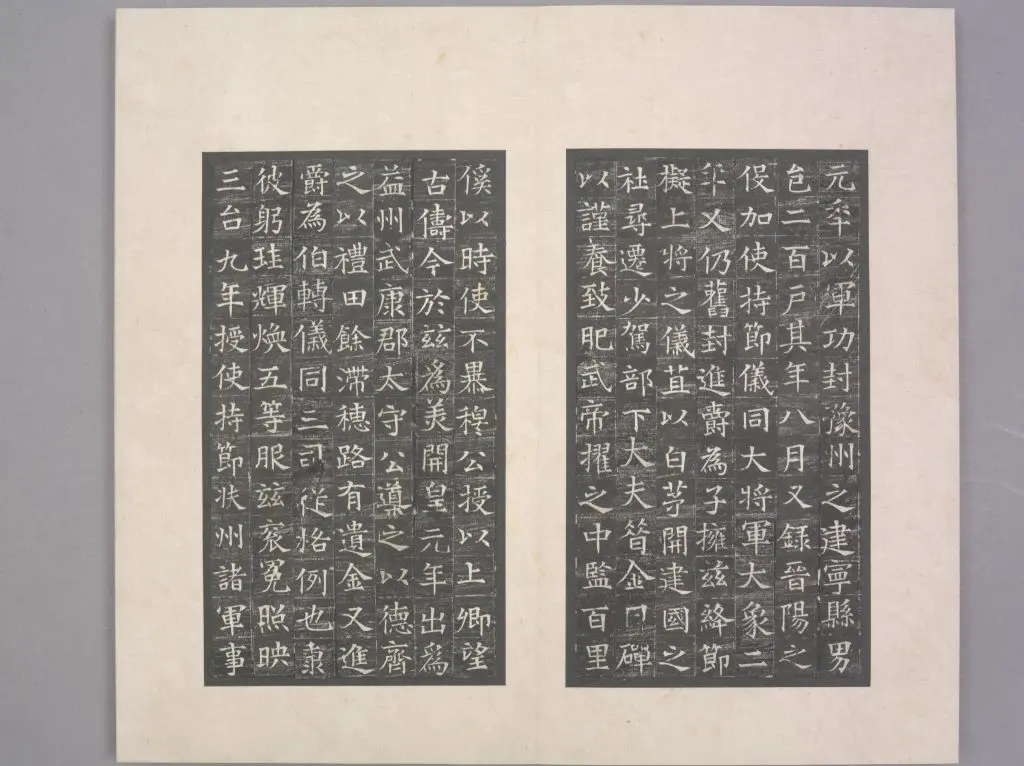 元年以渾功封豫州之建寧縣男
邑二百户其年八月又録晉陽之
役加使持節儀同大將軍大象二
年又仍舊封進爵為子擁兹絳節
擬上將之儀苴以白茅開建國之
社尋遷少駕部下大夫昔金日磾
以謹養致肥武帝擢之中監百里
傒以時使不暴穆公授以上卿望
古儔今於兹為美開皇元年出為
益州武康郡太守公導之以德齊
之以禮田餘滯穗路有遺金又進
爵為伯轉儀同三司從恪例也肅
彼躬珪輝煥五等服兹衮冕照映
三台九年授使持節扶州諸軍事